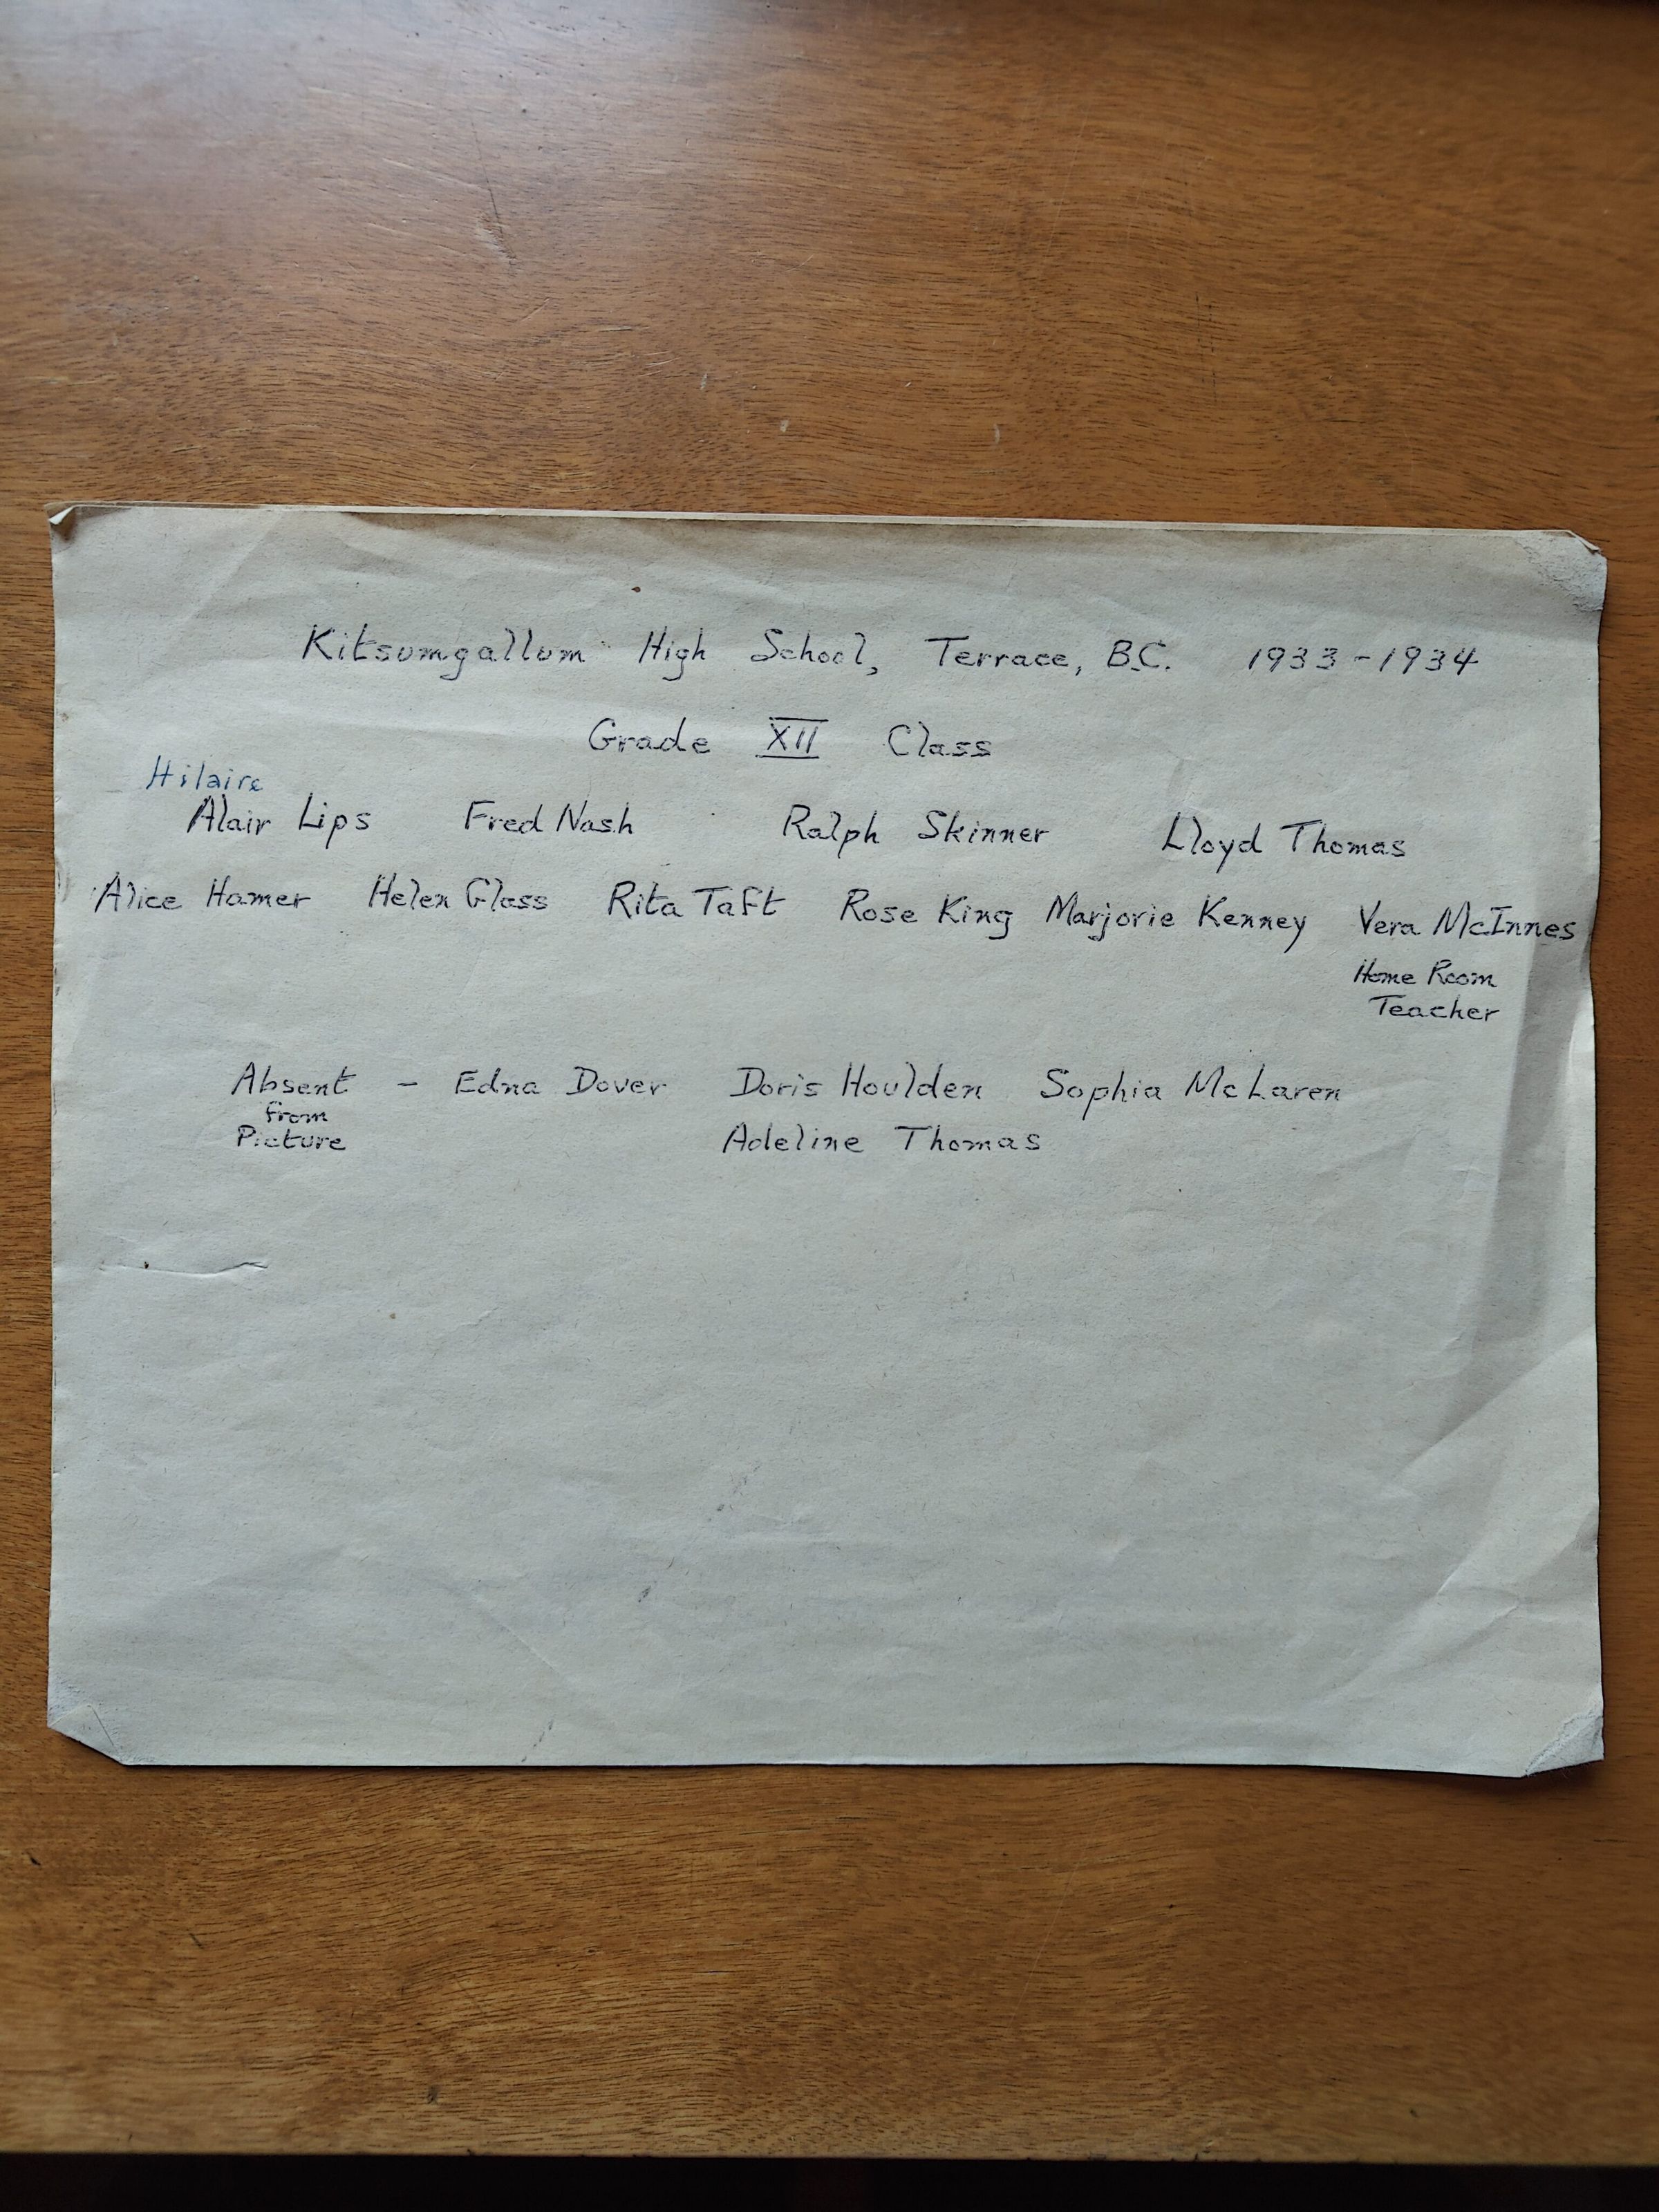 Kitsumgallum High School, Terrace, B.C. 1933-1934
Grade XII Class
Hilaire
Alair Lips Fred Nash Ralph Skinner Lloyd Thomas
Alice Hamer Helen Glass Rita Taft Rose King Marjorie Kenney Vera McInnes
Home Room
Teacher
Absent - Edna Dover Doris Houlden Sophia McLaren
from
Picture Adeline Thomas